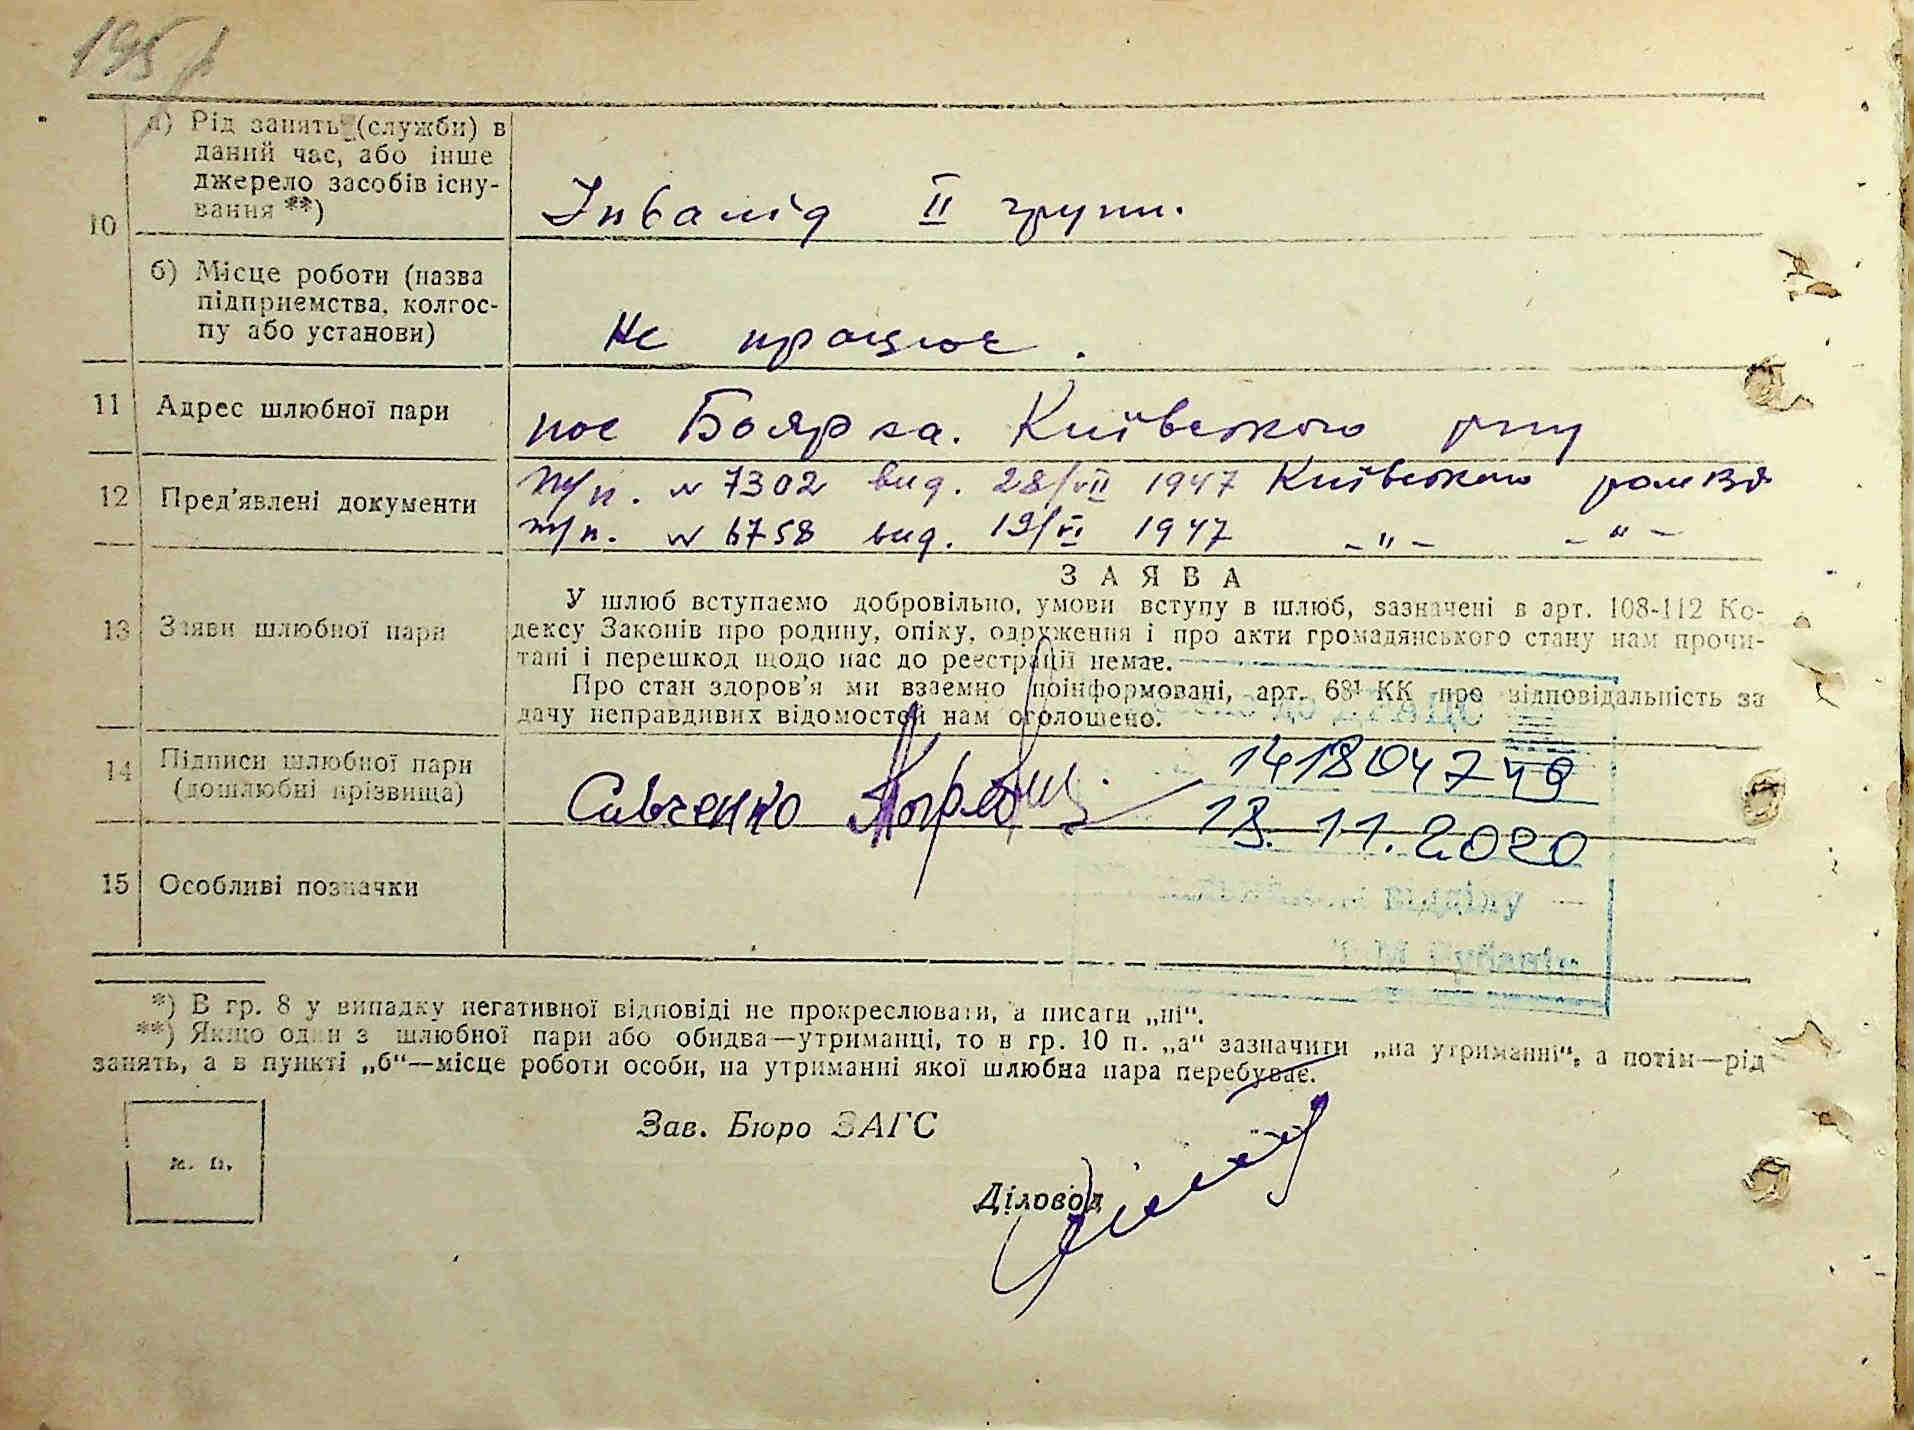 195
10
а) Рід занять (служби) в
даний час, або інше
джерело засобів існу-
вання **)
Інвалід II групи.
б) Місце роботи (назва
підприємства, колгос-
пу або установи)
Не працює.
11 Адрес шлюбної пари
пос Боярка. Київського р-ну
12 Пред'явлені документи
п. № 7302 вид. 28/VII 1947 Київського
п. № 6758 вид. 19/VI 1947 - " - - " -
13 Заяви шлюбної пари
ЗАЯВА
У шлюб вступаємо добровільно, умови вступу в шлюб, зазначені в арт. 108-112 Ко-
дексу Законів про родину, опіку, одруження і про акти громадянського стану нам прочи-
тані і перешкод щодо нас до реєстрації немає.
Про стан здоров'я ми взаємно поінформовані, арт. 68¹ КК про відповідальність за
дачу неправдивих відомостей нам оголошено.
14 Підписи шлюбної пари
(дошлюбні прізвища)
Савченко
1418047
18.11.2020
15 Особливі позначки
відділу
*) В гр. 8 у випадку негативної відповіді не прокреслювати, а писати „ні“.
**) Якщо один з шлюбної пари або обидва—утриманці, то в гр. 10 п. „а“ зазначити „на утриманні“, а потім—рід
занять, а в пункті „б“—місце роботи особи, на утриманні якої шлюбна пара перебуває.
Зав. Бюро ЗАГС
м. п.
Діловод